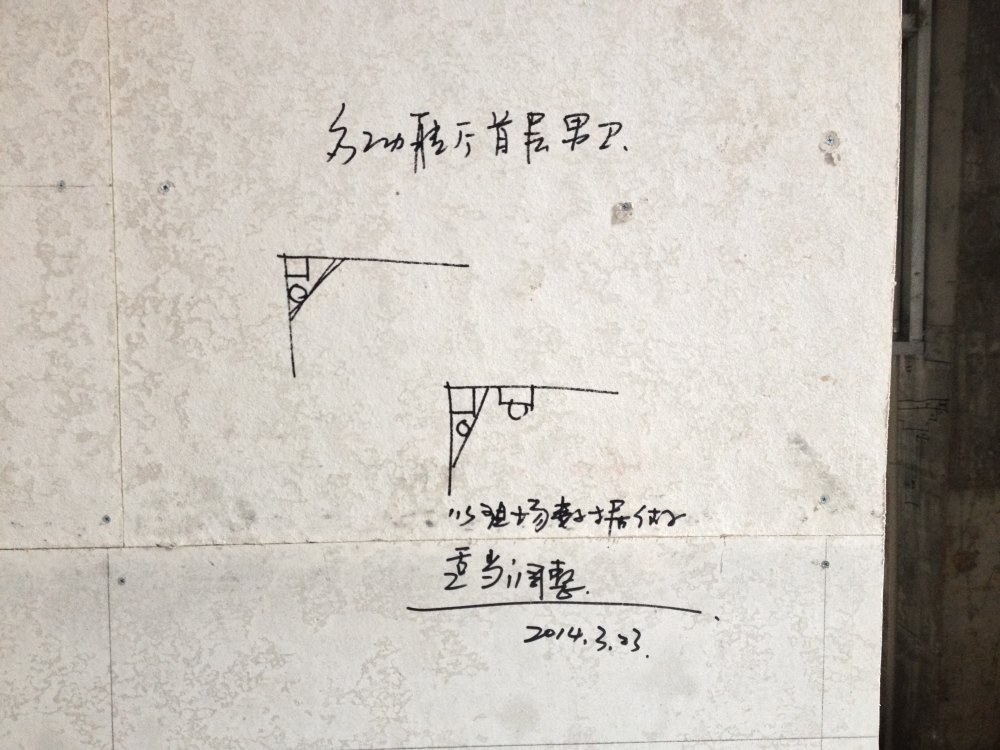 多功能厅首层男卫.
以现场数据做
适当调整.
2014.3.23.